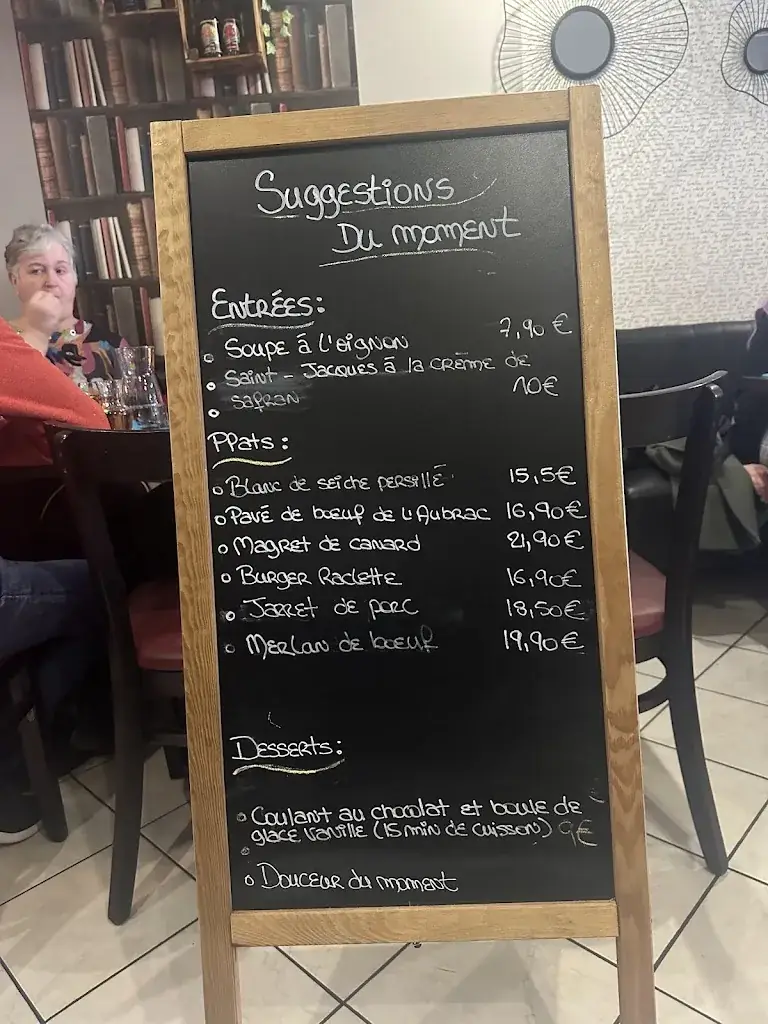 Suggestions
Du moment
Entrées:
Soupe à l'oignon 7,90 €
Saint-Jacques à la crème de
safran 10€
Plats:
Blanc de seiche persillé 15,5€
Pavé de boeuf de l'Aubrac 16,90€
Magret de canard 21,90€
Burger Raclette 16,90€
Jarret de porc 18,50€
Merlan de boeuf 19,90€
Desserts:
Coulant au chocolat et boule de
glace vanille (15 min de cuisson) 9€
Douceur du moment